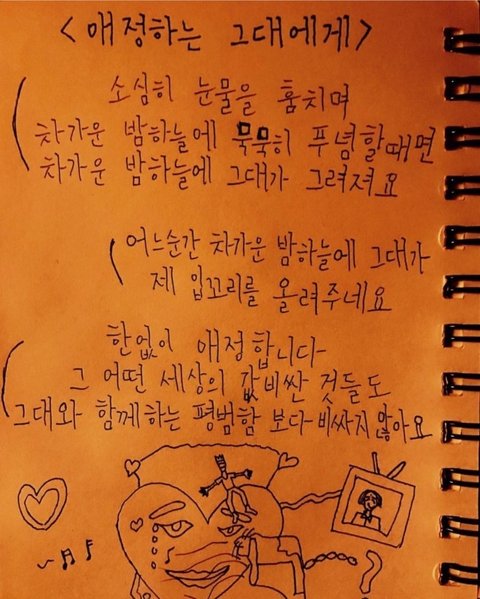 <애정하는 그대에게>
소심히 눈물을 훔치며
차가운 밤하늘에 묵묵히 푸념할때면
차가운 밤하늘에 그대가 그려져요
어느순간 차가운 밤하늘에 그대가
제 입꼬리를 올려주네요
한없이 애정합니다
그 어떤 세상의 값비싼 것들도
그대와 함께하는 평범함 보다 비싸지 않아요
?